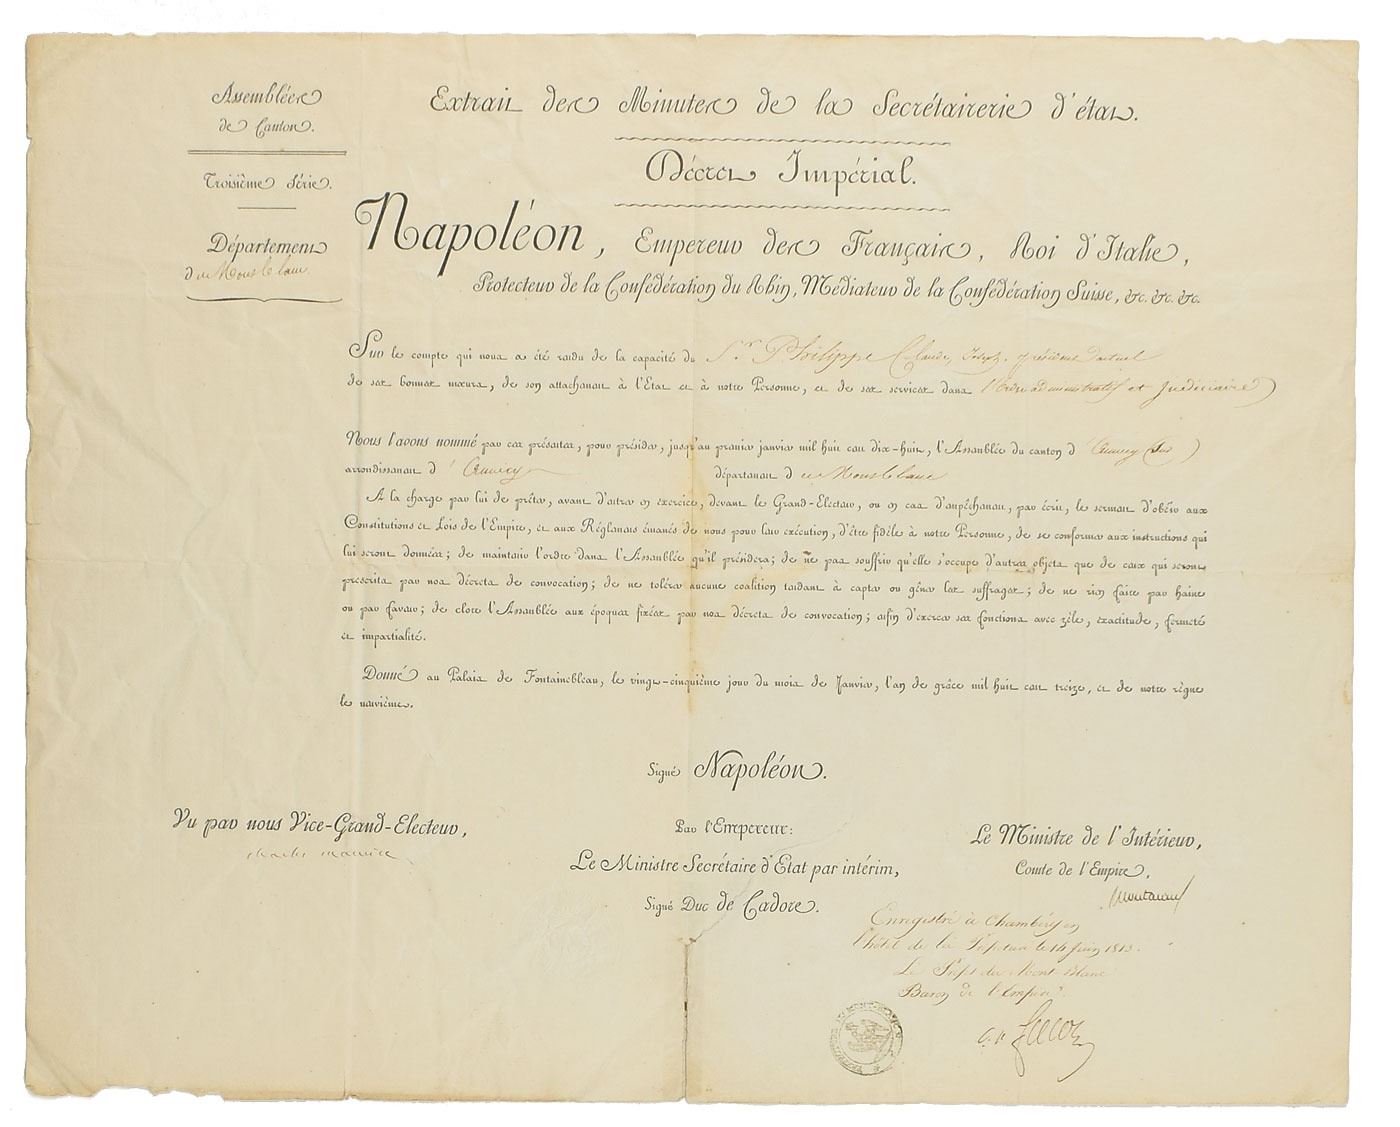 Assemblées
de Canton.
Troisième Série.
Département
du Mont blanc
Extrait des Minutes de la Secrétairerie d'état.
Décret Impérial.
Napoléon, Empereur des Français, Roi d'Italie,
Protecteur de la Confédération du Rhin, Médiateur de la Confédération Suisse, &c. &c. &c.
Sur le compte qui nous a été rendu de la capacité du Sr. Philippe Claude, Joseph, président actuel
de ses bonnes mœurs, de son attachement à l'Etat et à notre Personne, et de ses services dans l'Ordre administratif et Judiciaire
Nous l'avons nommé par ces présentes, pour présider, jusqu'au premier janvier mil huit cent dix-huit, l'Assemblée du canton d'Annecy (Sud)
arrondissement d'Annecy département de Mont blanc
A la charge par lui de prêter, avant d'entrer en exercice, devant le Grand-Electeur, ou en cas d'empêchement, par écrit, le serment d'obéir aux
Constitutions et Lois de l'Empire, et aux Réglemens émanés de nous pour leur exécution, d'être fidèle à notre Personne, de se conformer aux instructions qui
lui seront données; de maintenir l'ordre dans l'Assemblée qu'il présidera; de ne pas souffrir qu'elle s'occupe d'autres objets que de ceux qui seront
prescrits par nos décrets de convocation; de ne tolérer aucune coalition tendant à capter ou gêner les suffrages; de ne rien faire par haine
ou par faveur; de clore l'Assemblée aux époques fixées par nos décrets de convocation; enfin d'exercer ses fonctions avec zèle, exactitude, fermeté
et impartialité.
Donné au Palais de Fontainebleau, le vingt-cinquième jour du mois de Janvier, l'an de grâce mil huit cent treize, et de notre règne
le neuvième.
Signé Napoléon.
Vu par nous Vice-Grand-Electeur,
charles maurice
Par l'Empereur:
Le Ministre Secrétaire d'Etat par intérim,
Signé Duc de Cadore.
Le Ministre de l'Intérieur,
Comte de l'Empire,
Montalivet
Enregistré à Chambéry en
l'hôtel de la Préfecture le 14 Juin 1813.
Le Préfet du Mont-Blanc
Baron de l'Empire.